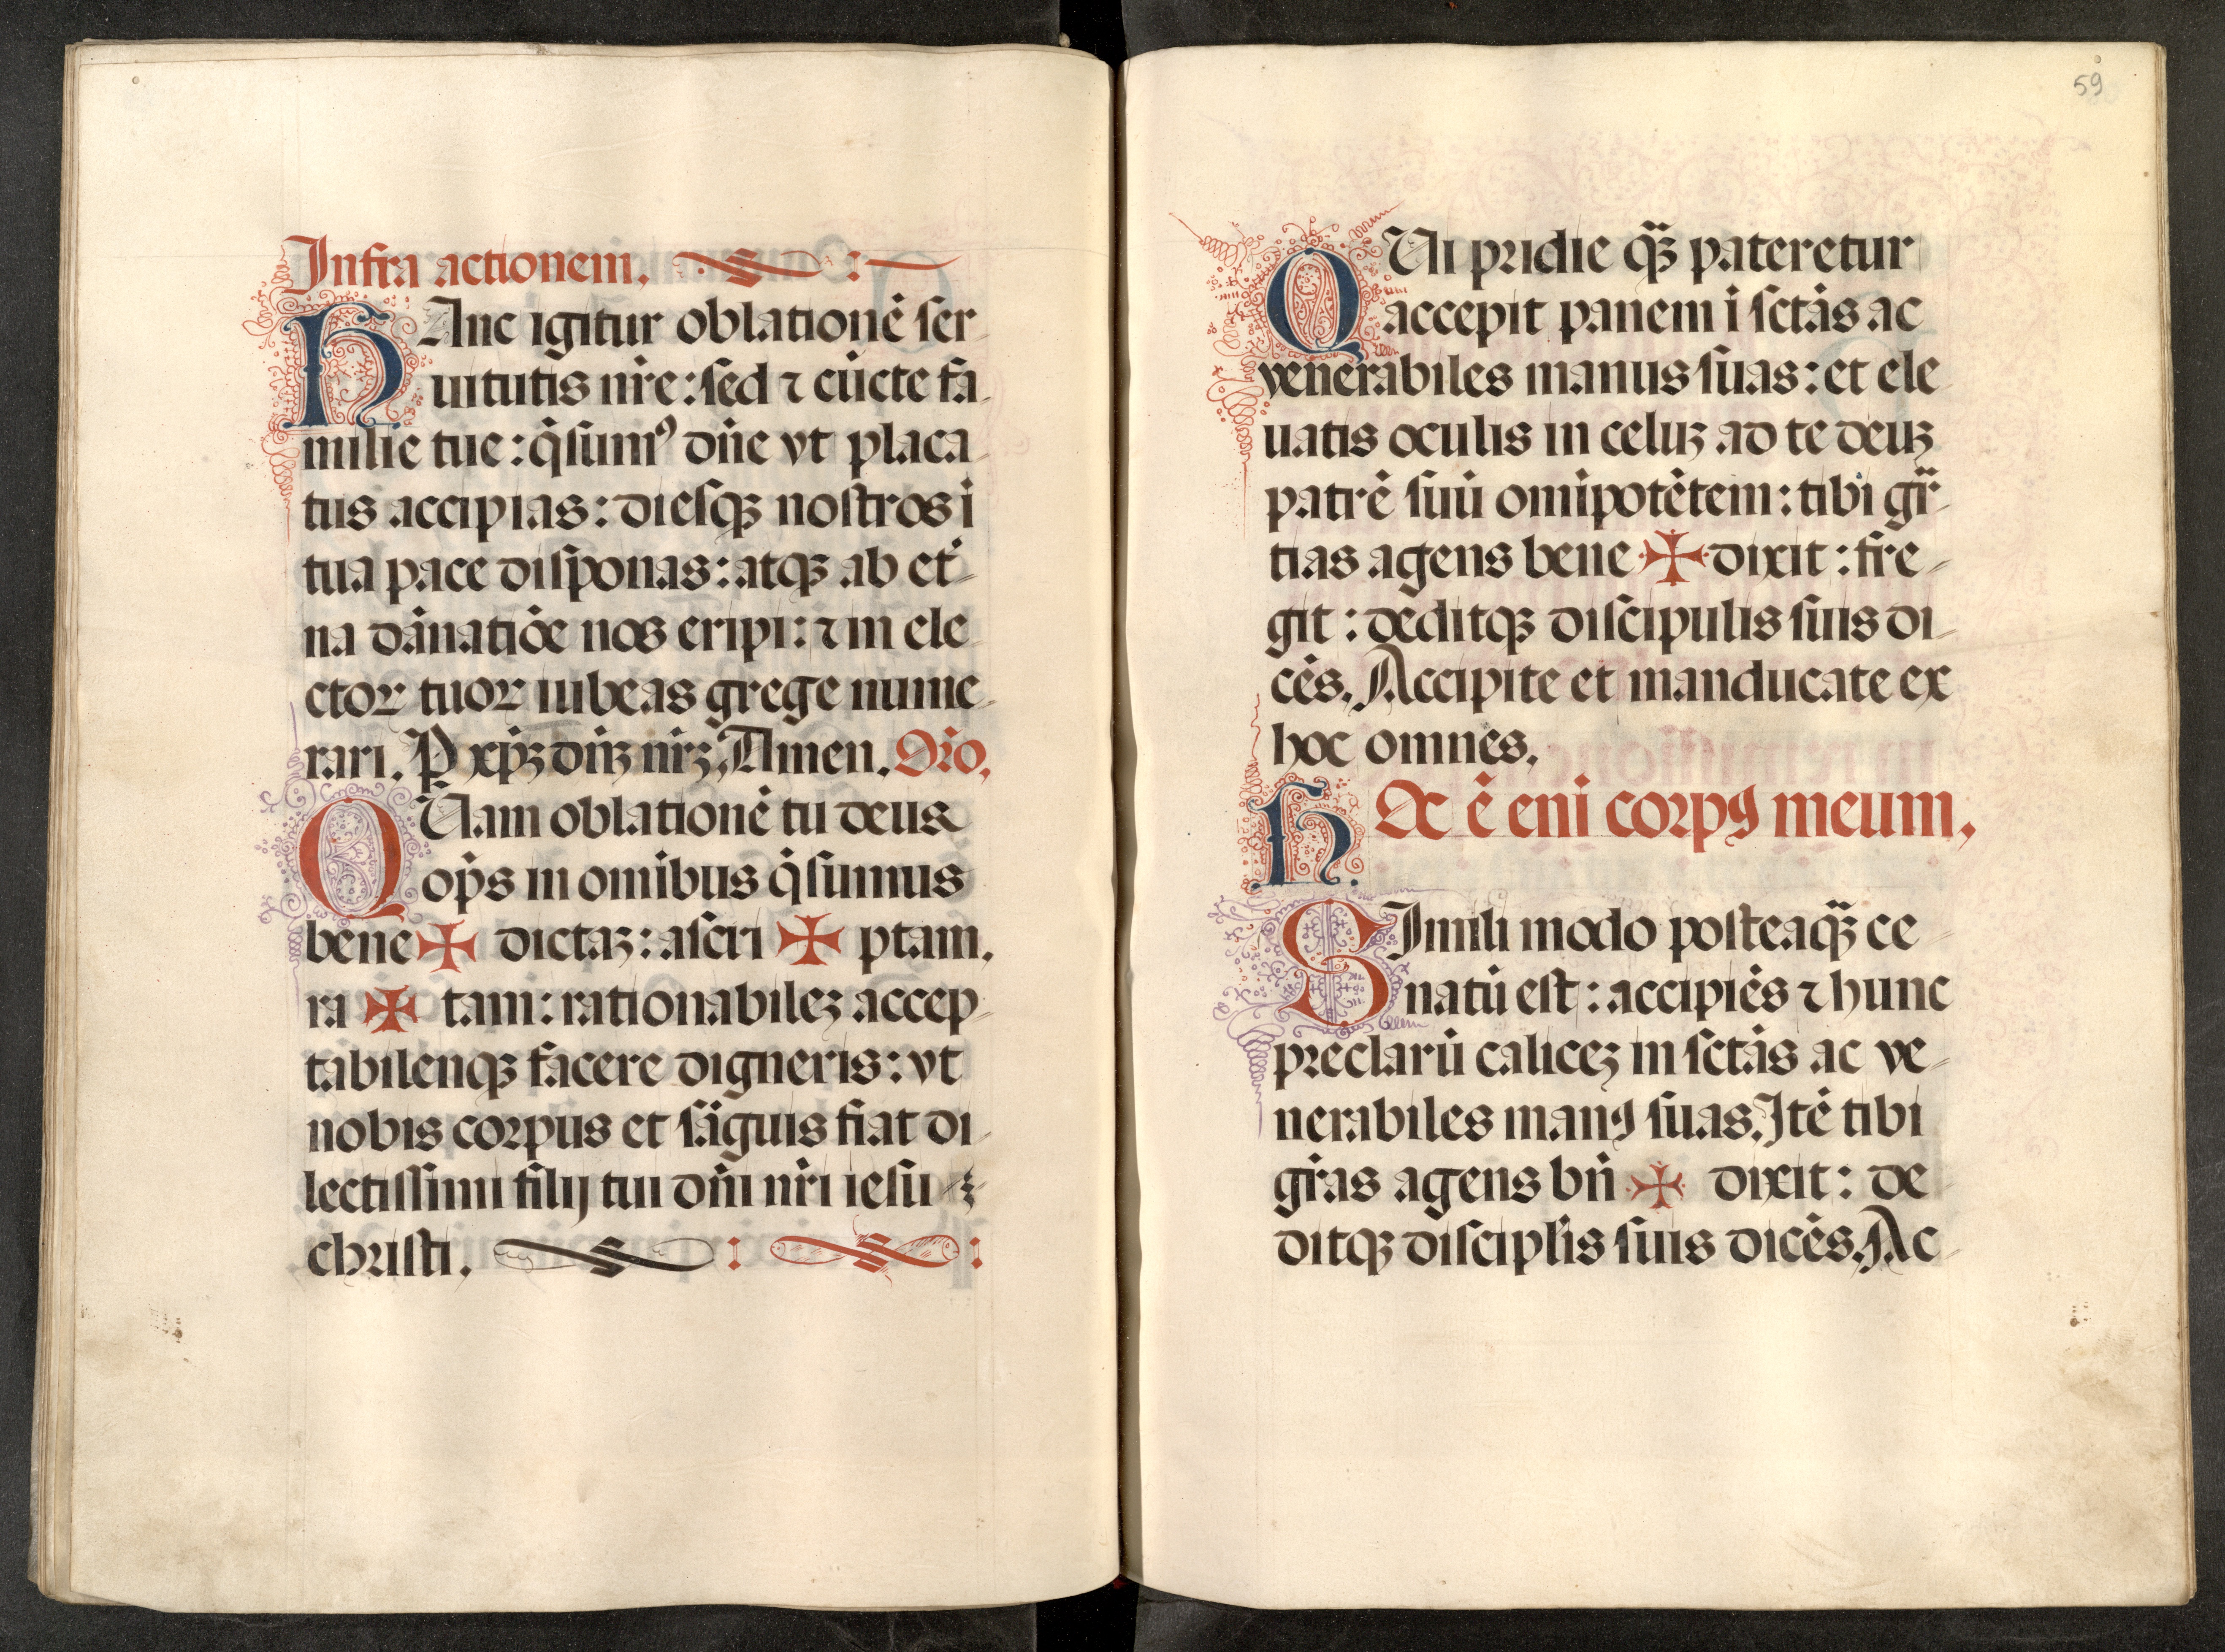 Infra actionem.
HAnc igitur oblationē ser
uitutis nr̄e: sed ⁊ cūcte fa
milie tue: q̄sumꝰ dn̄e vt placa
tus accipias: diesqꝫ nostros ī
tua pace disponas: atqꝫ ab et̄
na dānatiōe nos eripi: ⁊ in ele
ctoꝝ tuoꝝ iubeas grege nume
rari. P xp̄ꝫ dn̄ꝫ nr̄ꝫ, Amen. Or̄o,
QUam oblationē tu deus
op̄s in omībus q̄sumus
bene ✠ dictaꝫ: ascri ✠ ptam.
ra ✠ tam: rationabileꝫ accep
tabilenqꝫ facere digneris: vt
nobis corpus et sāguis fiat di
lectissimi filij tui dn̄i nr̄i iesu
christi.
59
QUi pridie qꝫ̄ pateretur
accepit panem ī sctās ac
venerabiles manus suas: et ele
uatis oculis in celuꝫ ad te deuꝫ
patrē suū omīpotētem: tibi gr̄
tias agens bene ✠ dixit: fre
git: deditqꝫ discipulis suis di
cēs. Accipite et manducate ex
hoc omnes.
HOc ē eni corpꝯ meum.
SImili modo posteaqꝫ̄ ce
natū est: accipiēs ⁊ hunc
preclarū caliceꝫ in sctās ac ve
nerabiles manꝯ suas. Itē tibi
gr̄as agens bn̄ ✠ dixit: de
ditqꝫ discipl̄is suis dicēs. Ac